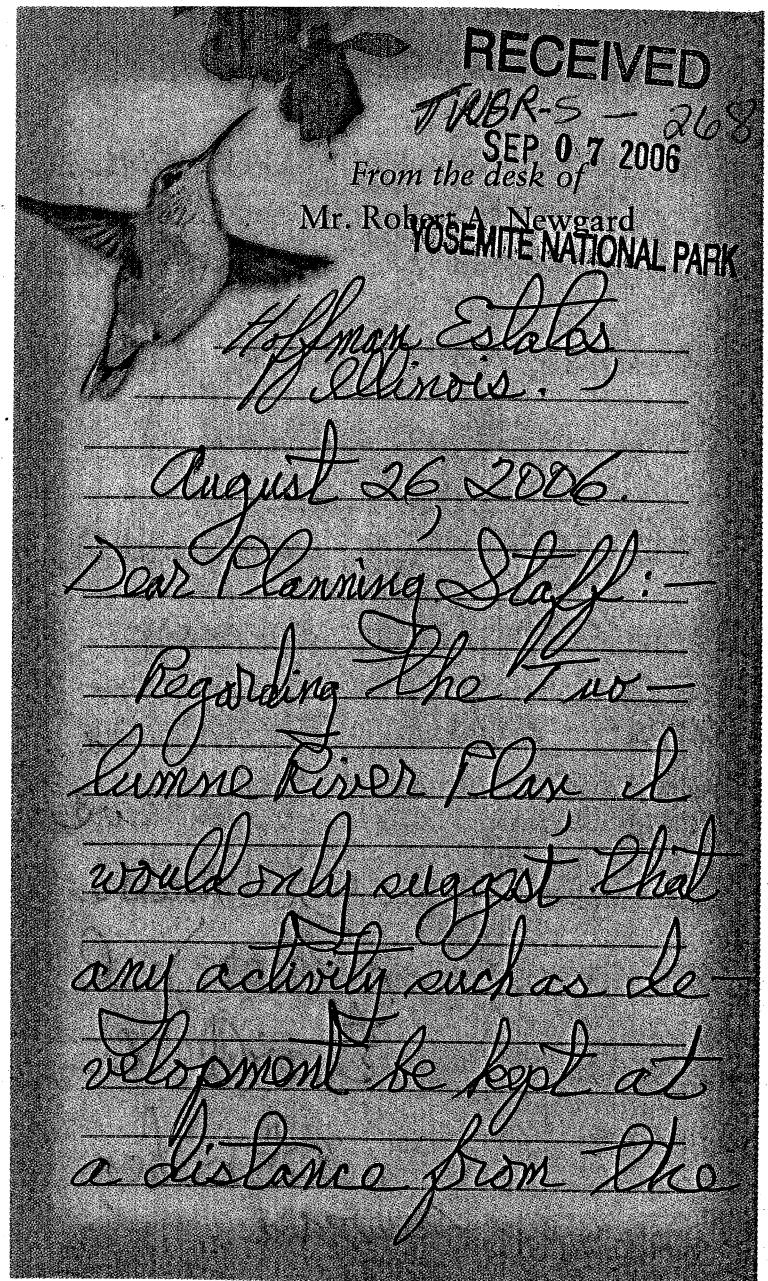 RECEIVED
TWBR-S - 268
SEP 07 2006
From the desk of
Mr. Robert A. Newgard
YOSEMITE NATIONAL PARK
Hoffman Estates,
Illinois.
August 26, 2006.
Dear Planning Staff:—
Regarding the Tuo—
lumne River Plan, I
would only suggest that
any activity such as de—
velopment be kept at
a distance from the